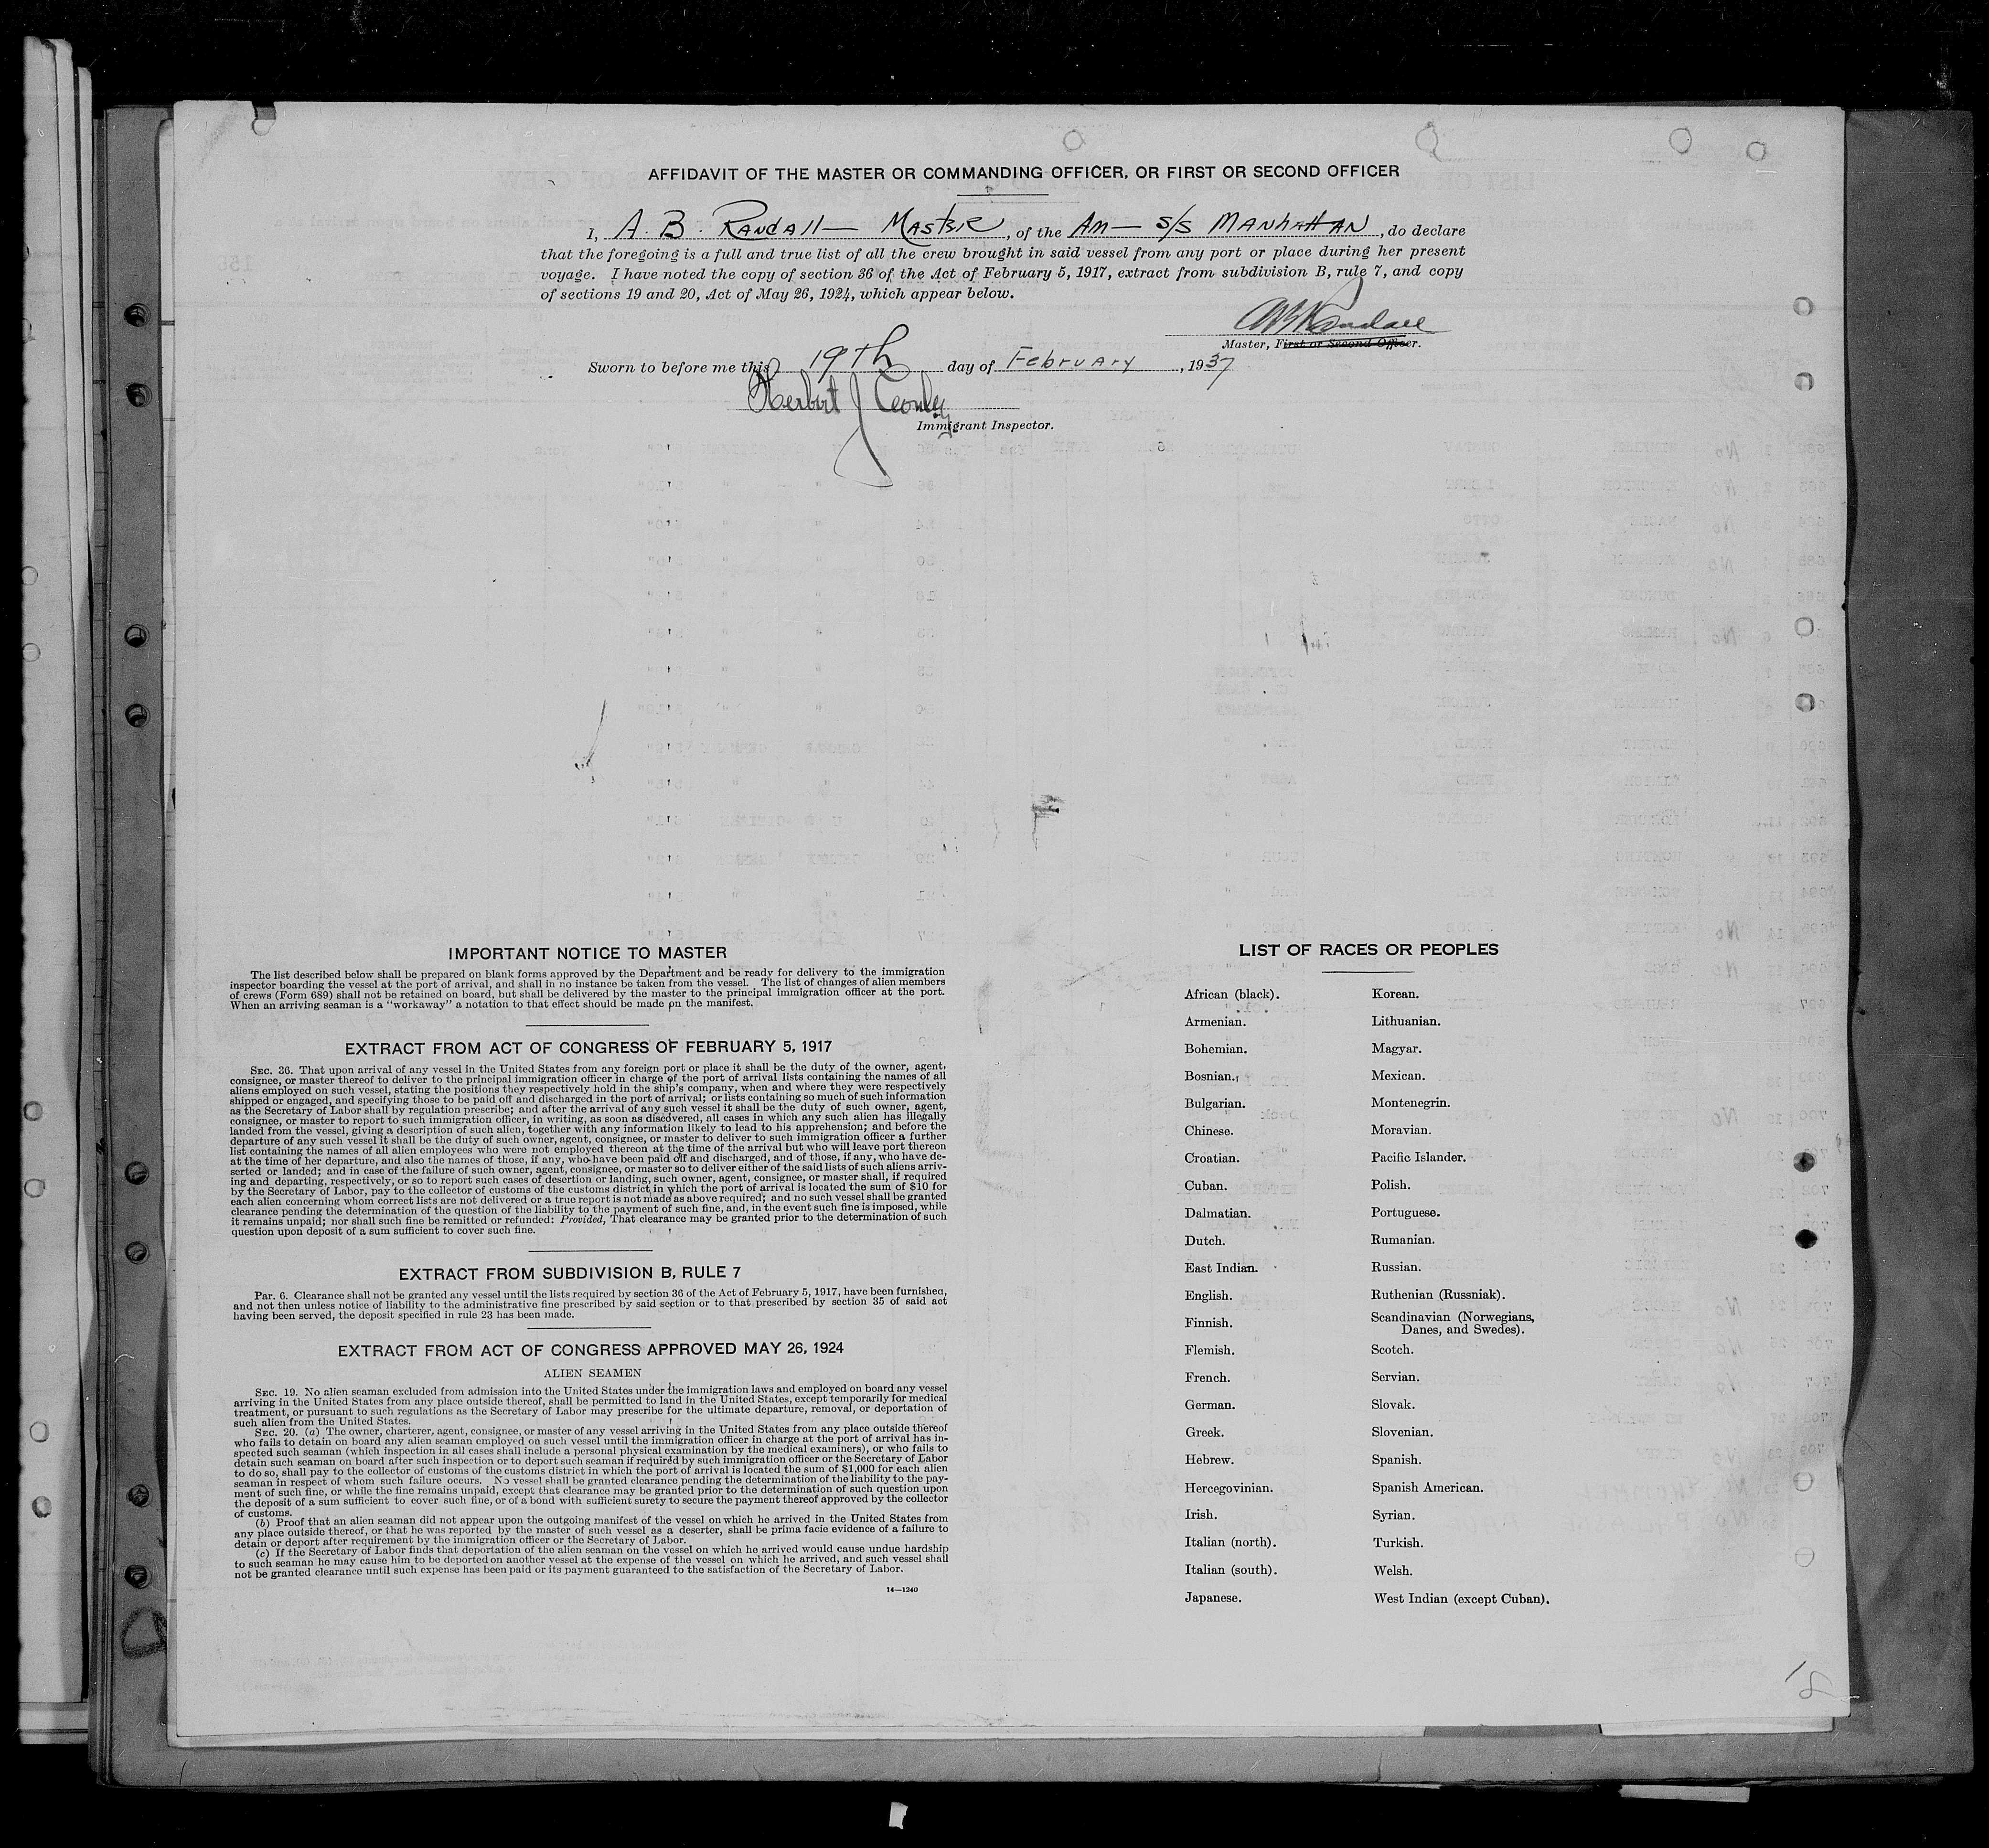 AFFIDAVIT OF THE MASTER OR COMMANDING OFFICER, OR FIRST OR SECOND OFFICER
I, A. B. Randall — Master, of the Am — S/S Manhattan, do declare
that the foregoing is a full and true list of all the crew brought in said vessel from any port or place during her present
voyage. I have noted the copy of section 36 of the Act of February 5, 1917, extract from subdivision B, rule 7, and copy
of sections 19 and 20, Act of May 26, 1924, which appear below.
ABRandall
Master, First or Second Officer.
Sworn to before me this 19th day of February, 1937
Herbert J
Immigrant Inspector.
IMPORTANT NOTICE TO MASTER
The list described below shall be prepared on blank forms approved by the Department and be ready for delivery to the immigration
inspector boarding the vessel at the port of arrival, and shall in no instance be taken from the vessel. The list of changes of alien members
of crews (Form 689) shall not be retained on board, but shall be delivered by the master to the principal immigration officer at the port.
When an arriving seaman is a "workaway" a notation to that effect should be made on the manifest.
EXTRACT FROM ACT OF CONGRESS OF FEBRUARY 5, 1917
SEC. 36. That upon arrival of any vessel in the United States from any foreign port or place it shall be the duty of the owner, agent,
consignee, or master thereof to deliver to the principal immigration officer in charge of the port of arrival lists containing the names of all
aliens employed on such vessel, stating the positions they respectively hold in the ship's company, when and where they were respectively
shipped or engaged, and specifying those to be paid off and discharged in the port of arrival; or lists containing so much of such information
as the Secretary of Labor shall by regulation prescribe; and after the arrival of any such vessel it shall be the duty of such owner, agent,
consignee, or master to report to such immigration officer, in writing, as soon as discovered, all cases in which any such alien has illegally
landed from the vessel, giving a description of such alien, together with any information likely to lead to his apprehension; and before the
departure of any such vessel it shall be the duty of such owner, agent, consignee, or master to deliver to such immigration officer a further
list containing the names of all alien employees who were not employed thereon at the time of the arrival but who will leave port thereon
at the time of her departure, and also the names of those, if any, who have been paid off and discharged, and of those, if any, who have de-
serted or landed; and in case of the failure of such owner, agent, consignee, or master so to deliver either of the said lists of such aliens arriv-
ing and departing, respectively, or so to report such cases of desertion or landing, such owner, agent, consignee, or master shall, if required
by the Secretary of Labor, pay to the collector of customs of the customs district in which the port of arrival is located the sum of $10 for
each alien concerning whom correct lists are not delivered or a true report is not made as above required; and no such vessel shall be granted
clearance pending the determination of the question of the liability to the payment of such fine, and, in the event such fine is imposed, while
it remains unpaid; nor shall such fine be remitted or refunded: Provided, That clearance may be granted prior to the determination of such
question upon deposit of a sum sufficient to cover such fine.
EXTRACT FROM SUBDIVISION B, RULE 7
Par. 6. Clearance shall not be granted any vessel until the lists required by section 36 of the Act of February 5, 1917, have been furnished,
and not then unless notice of liability to the administrative fine prescribed by said section or to that prescribed by section 35 of said act
having been served, the deposit specified in rule 23 has been made.
EXTRACT FROM ACT OF CONGRESS APPROVED MAY 26, 1924
ALIEN SEAMEN
SEC. 19. No alien seaman excluded from admission into the United States under the immigration laws and employed on board any vessel
arriving in the United States from any place outside thereof, shall be permitted to land in the United States, except temporarily for medical
treatment, or pursuant to such regulations as the Secretary of Labor may prescribe for the ultimate departure, removal, or deportation of
such alien from the United States.
SEC. 20. (a) The owner, charterer, agent, consignee, or master of any vessel arriving in the United States from any place outside thereof
who fails to detain on board any alien seaman employed on such vessel until the immigration officer in charge at the port of arrival has in-
spected such seaman (which inspection in all cases shall include a personal physical examination by the medical examiners), or who fails to
detain such seaman on board after such inspection or to deport such seaman if required by such immigration officer or the Secretary of Labor
to do so, shall pay to the collector of customs of the customs district in which the port of arrival is located the sum of $1,000 for each alien
seaman in respect of whom such failure occurs. No vessel shall be granted clearance pending the determination of the liability to the pay-
ment of such fine, or while the fine remains unpaid, except that clearance may be granted prior to the determination of such question upon
the deposit of a sum sufficient to cover such fine, or of a bond with sufficient surety to secure the payment thereof approved by the collector
of customs.
(b) Proof that an alien seaman did not appear upon the outgoing manifest of the vessel on which he arrived in the United States from
any place outside thereof, or that he was reported by the master of such vessel as a deserter, shall be prima facie evidence of a failure to
detain or deport after requirement by the immigration officer or the Secretary of Labor.
(c) If the Secretary of Labor finds that deportation of the alien seaman on the vessel on which he arrived would cause undue hardship
to such seaman he may cause him to be deported on another vessel at the expense of the vessel on which he arrived, and such vessel shall
not be granted clearance until such expense has been paid or its payment guaranteed to the satisfaction of the Secretary of Labor.
14—1240
LIST OF RACES OR PEOPLES
African (black).
Armenian.
Bohemian.
Bosnian.
Bulgarian.
Chinese.
Croatian.
Cuban.
Dalmatian.
Dutch.
East Indian.
English.
Finnish.
Flemish.
French.
German.
Greek.
Hebrew.
Hercegovinian.
Irish.
Italian (north).
Italian (south).
Japanese.
Korean.
Lithuanian.
Magyar.
Mexican.
Montenegrin.
Moravian.
Pacific Islander.
Polish.
Portuguese.
Rumanian.
Russian.
Ruthenian (Russniak).
Scandinavian (Norwegians,
Danes, and Swedes).
Scotch.
Servian.
Slovak.
Slovenian.
Spanish.
Spanish American.
Syrian.
Turkish.
Welsh.
West Indian (except Cuban).
18